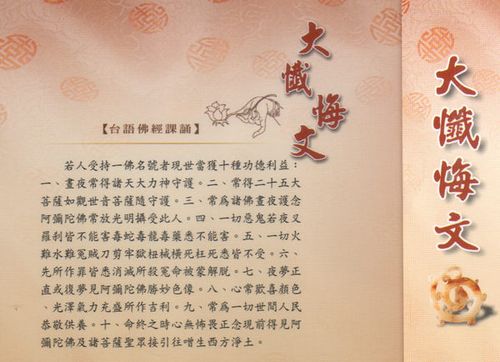 大懺悔文
【台語佛經課誦】
若人受持一佛名號者現世當獲十種功德利益：
一、晝夜常得諸天大力神守護。二、常得二十五大
菩薩如觀世音菩薩隨守護。三、常為諸佛晝夜護念
阿彌陀佛常放光明攝受此人。四、一切惡鬼若夜叉
羅剎皆不能害毒蛇毒龍毒藥悉不能害。五、一切火
難水難冤賊刀剪牢獄杻械橫死枉死悉皆不受。六、
先所作罪皆悉消滅所殺冤命被蒙解脫。七、夜夢正
直或復夢見阿彌陀佛勝妙色像。八、心常歡喜顏色
、光澤氣力充盛所作吉利。九、常為一切世間人民
恭敬供養。十、命終之時心無怖畏正念現前得見阿
彌陀佛及諸菩薩聖眾接引往噌生西方淨土。
大懺悔文